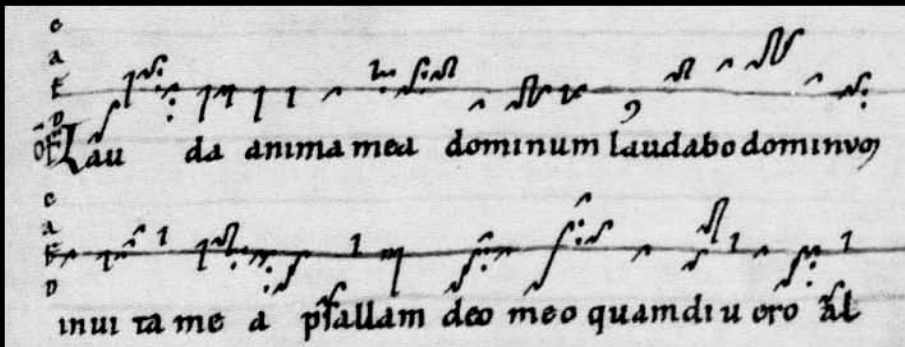 c
a
F
D
OF Lau da anima mea dominum laudabo dominum
c
a
F
D
inui ta me a psallam deo meo quamdiu ero al